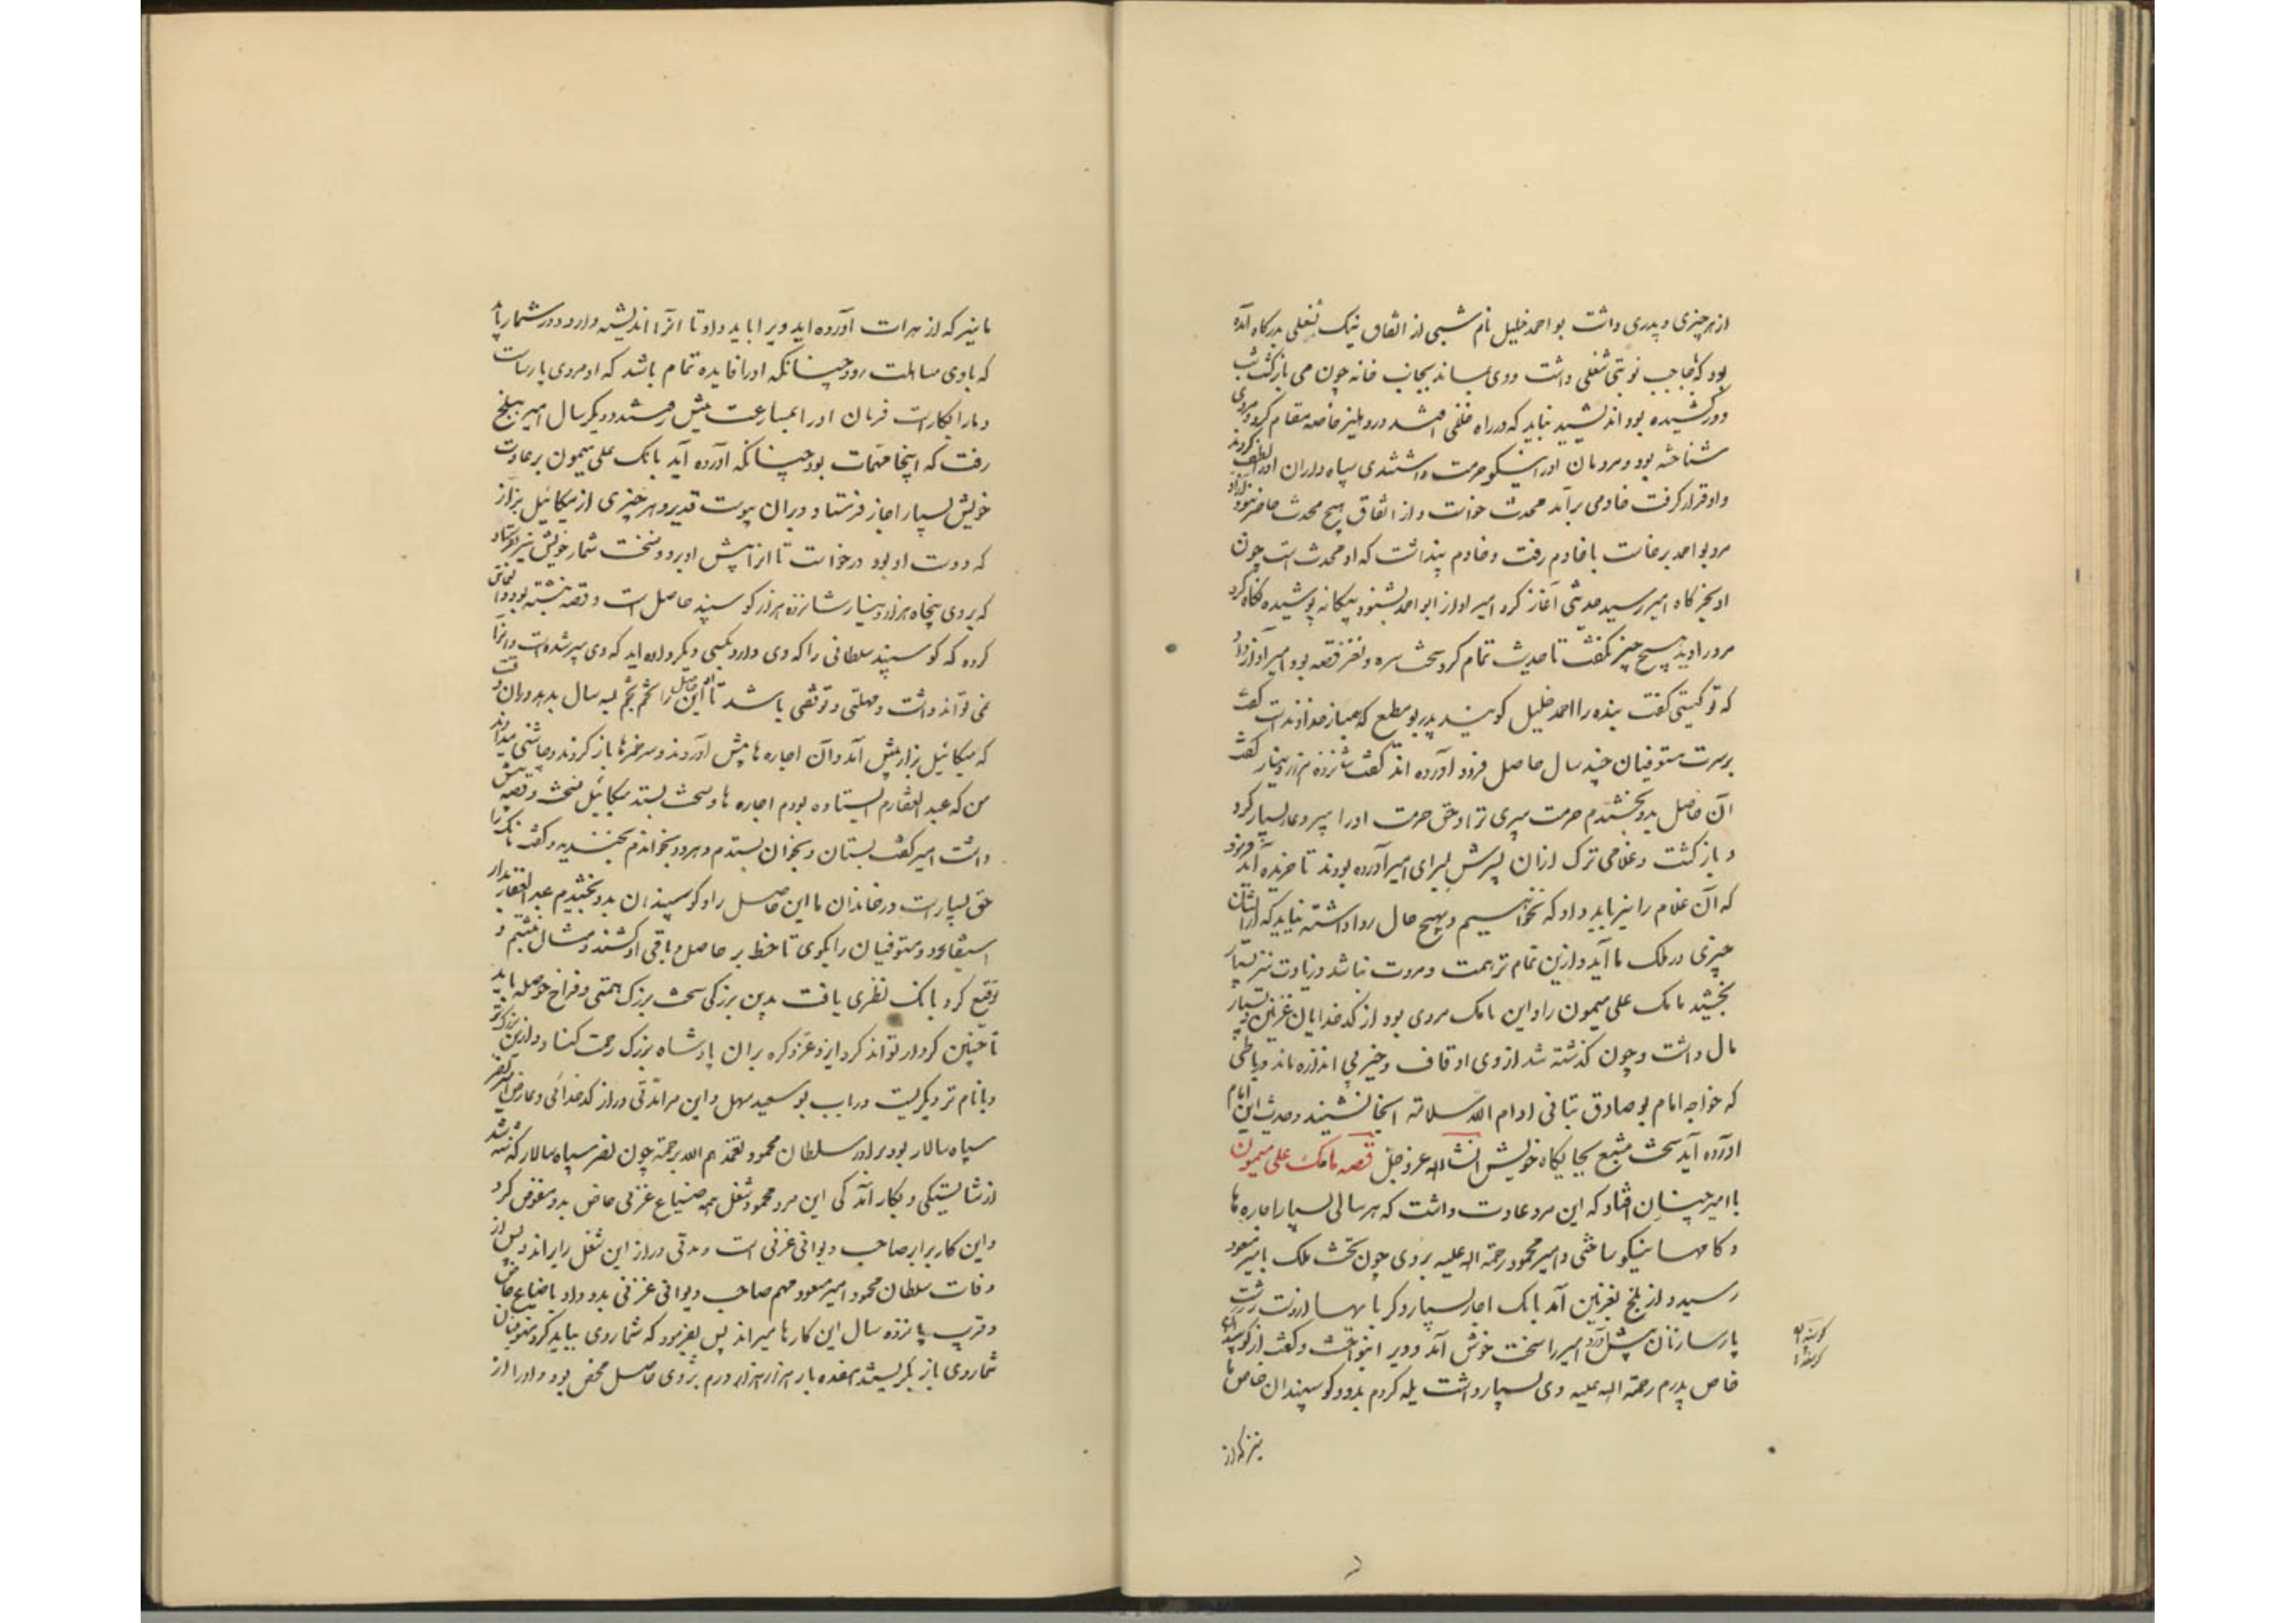 از هر چیزی و پدری داشت بو احمد خلیل نام شبی از اتفاق نیک شغلی بدرگاه آمده
بود که حاجب نوبتی شغلی داشت و وی بماند بجانب خانه چون می بازگشت شب
دور کشیده بود اندیشید نباید که در راه خللی افتد در دهلیز خاصه مقام کرد و مردی
شناخته بود و مردمان او را نیکو حرمت داشتندی سیاه داران او را لطف کردند
و او قرار گرفت خادمی برآمد محدث خواست و از اتفاق هیچ محدث حاضر نبود آزاد
مرد بو احمد برخاست با خادم رفت و خادم پنداشت که او محدث است چون
او بخرگاه امیر رسید حدیثی آغاز کرد امیر آواز ابو احمد بشنود بیگانه پوشیده نگاه کرد
مرد را دید هیچ چیز نگفت تا حدیث تمام کرد سخت سره و نغز قصه بود امیر آواز داد
که تو کیستی گفت بنده را احمد خلیل گویند پدر بو مطیع که همباز خداوند است گفت
بر پسرت مستوفیان چند سال حاصل فرود آورده اند گفت شانزده هزار دینار گفت
آن حاصل بدو بخشیدم حرمت پیری ترا و حق حرمت او را پیر دعا بسیار کرد
و بازگشت و غلامی ترک از آن پسرش بسرای امیر آورده بودند تا خریده آید فرمود
که آن غلام را نیز باید داد که نخواهیم و بهیچ حال روا داشته نیاید که از ایشان
چیزی در ملک ما آید و ازین تمام تر همت و مروت نباشد و زیادت نیز بسیار
بخشید مامک علی میمون را و این مامک مردی بود از کدخدایان غزنین و بسیار
مال داشت و چون گذشته شد از وی اوقاف و چیز بی اندازه ماند و رباطی
که خواجه امام بو صادق تبانی ادام الله سلامته آنجا نشیند و حدیث این امام
آورده آید سخت مشبع بجایگاه خویش انشاالله عز و جل قصه مامک علی میمون
با امیر چنان افتاد که این مرد عادت داشت که هر سالی بسیار اچارها
و کامها نیکو ساختی و امیر محمود رحمة الله علیه بردی چون تخت ملک بامیر مسعود
رسید و از بلخ بغزنین آمد مامک اچار بسیار و کرباسها از دست رشت
پارسا زنان پیش آورد امیر را سخت خوش آمد و ویرا بنواخت و گفت از گوسپندان
خاص پدرم رحمة الله علیه وی بسیار داشت یله کردم بدو و گوسپندان خاص ما
نیز که از
ما نیز که از هرات آورده اید ویرا باید داد تا آنرا اندیشه دارد و در شمار باید
که باوی مساهلت رود چنانکه او را فایده تمام باشد که او مردی پارساست
و ما را بکار است فرمان او را بمسارعت پیش رفتند و دیگر سال امیر ببلخ
رفت که اینجا مهمات بود چنانکه آورده آید مامک علی میمون بر عادت
خویش بسیار اچار فرستاد و بر آن پیوست قدید و هر چیزی از میکائیل بزاز
که دوست او بود درخواست تا آنرا پیش او برد و نسخت شمار خویش نیز بفرستاد
که بر وی پنجاه هزار دینار شانزده هزار گوسپند حاصل است و قصه نبشته بود و التماس
کرده که گوسپند سلطانی را که وی دارد بکسی دیگر داده آید که وی پیر شده است و آنرا
نمی تواند داشت و مهلتی و توقفی باشد تا او این حاصل را نجم نجم بسه سال بدهد در آن وقت
که میکائیل بزاز پیش آمد و آن اچارها پیش آوردند و سر خمرها باز کردند و چاشنی میدادند
من که عبدالغفارم ایستاده بودم اچارها و سخت بستد میکائیل نسخت و قصه پیش
داشت امیر گفت بستان و بخوان بستدم و هر دو بخواندم بخندید و گفت مامک را
حق بسیار است در خاندان ما این حاصل را و گوسپندان بدو بخشیدم عبدالغفار
استیفا رود و مستوفیان را بگوی تا خط بر حاصل و باقی او کشند و مثال نبشتم و
توقیع کرد مامک نظری یافت بدین بزرگی سخت بزرگ همتی و فراخ حوصله باید
تا چنین کردار تواند کرد ایزد عز ذکره بر آن پادشاه بزرگ رحمت کناد و از این بزرگ تر
و با نام تر دیگریست در باب بو سعید سهل و این مرد مدتی دراز کدخدائی و عارض امیر نصر
سپاه سالار بود برادر سلطان محمود تغمدهم الله برحمته چون نصر سپاه سالار گذشته شد
از شایستگی و بکار آمدگی این مرد محمود شغل همه ضیاع غزنی خاص بدو مفوض کرد
و این کار برابر صاحب دیوانی غزنی است و مدتی دراز این شغل را براند و پس از
وفات سلطان محمود امیر مسعود مهم صاحب دیوانی غزنی بدو داد با ضیاع خاص
و قریب پانزده سال این کارها میراند پس بفرمود که شمار وی بباید کرد مستوفیان
شمار وی باز نگریستند هفده بار هزار هزار درم بر وی حاصل محض بود و او را از